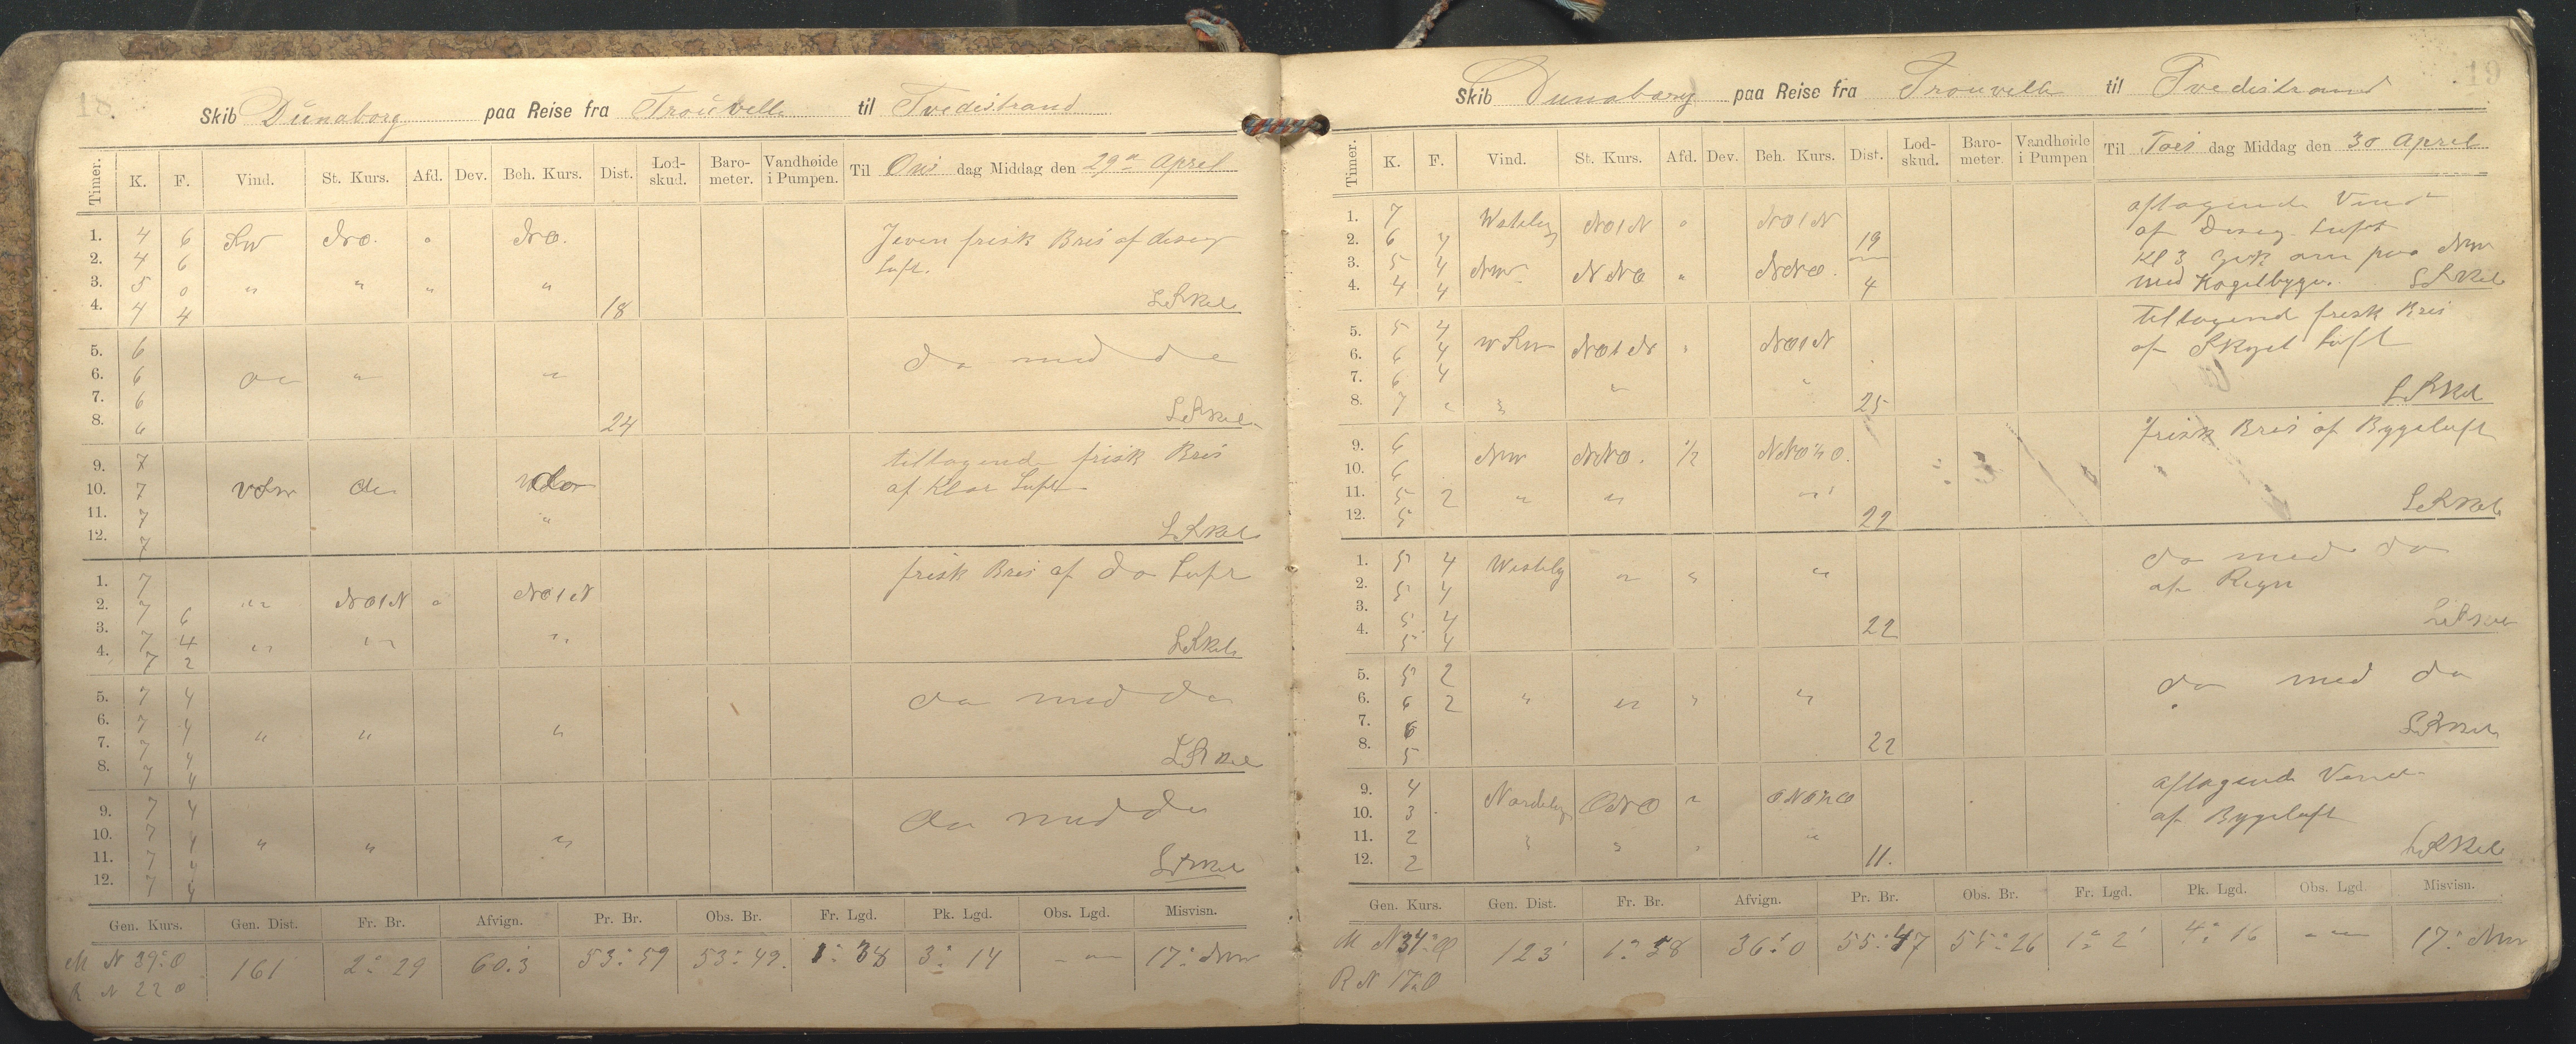 18.
Skib Dünaborg paa Reise fra Trouville til Tvedestrand
Timer. K. F. Vind. St. Kurs. Afd. Dev. Beh. Kurs. Dist. Lod-skud. Baro-meter. Vandhøide i Pumpen. Til Ons dag Middag den 29de April
1. 4 6 SW NO. " NO. Jeven frisk Bris af diseg
2. 4 6 Luft.
3. 5 0 " " " "
4. 4 4 18
5. 6 do med do
6. 6 do " "
7. 6
8. 6 24
9. 7 tiltagende frisk Bris
10. 7 VSW do do af Klar Luft
11. 7 "
12. 7
1. 7 frisk Bris af do Luft
2. 7 6 " NO t N " NO t N
3. 7 4 " " "
4. 7 2
5. 7 4 do med do
6. 7 4 " " "
7. 7 4
8. 7 4
9. 7 4 do med do
10. 7 4 " " "
11. 7 4
12. 7 4
Gen. Kurs. Gen. Dist. Fr. Br. Afvign. Pr. Br. Obs. Br. Fr. Lgd. Pk. Lgd. Obs. Lgd. Misvisn.
M N 39° O 161 2° 29 60.3 53° 59 53° 49. 1° 38 3° 14 - — 17° NW
R N 22 O
19
Skib Dunaborg paa Reise fra Trouville til Tvedestrand
Timer. K. F. Vind. St. Kurs. Afd. Dev. Beh. Kurs. Dist. Lod-skud. Baro-meter. Vandhøide i Pumpen Til Tors dag Middag den 30 April
1. 7 Westlig NO t N " NO t N aftagende Vind
2. 6 4 19 af Diseg Luft
3. 5 4 NW NNO " NNO. Kl 3 gik om paa NW
4. 4 4 4 med Hagelbyger.
5. 5 4 WSW NO t N " NO t N tiltagend frisk Bris
6. 6 4 af Skyet Luft
7. 6 4 " "
8. 7 " " 25
9. 6 NW NNO. ½ NNO½O. frisk Bris af Bygeluft
10. 6
11. 5 2 " " "
12. 5 22
1. 5 4 Westlig " " " do med do
2. 5 4 af Regn
3. 5 4
4. 5 4 22
5. 5 2 do med do
6. 6 2 " " " "
7. 6
8. 5 22
9. 4 Nordlig ONO " ONO½O aftagende Vind
10. 3 af Bygeluft
11. 2 " " " "
12. 2 11.
Gen. Kurs. Gen. Dist. Fr. Br. Afvign. Pr. Br. Obs. Br. Fr. Lgd. Pk. Lgd. Obs. Lgd. Misvisn.
M N 34° O 123 1° 58 36° 0 55° 47 55° 26 1° 2' 4° 16 - — 17° NW
R N 17° O